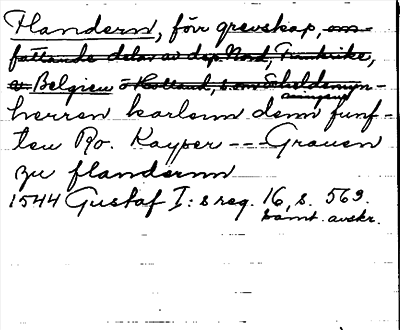 Flandern, förr grevskap, om-
fattande delar av dep. Nord, Frankrike,
o Belgien o Holland, s. om Scheldemyn-
ningen
herren karlenn denn funf-
ten Ro. Kayser -- Grauen
zu flandernn
1544 Gustaf I: s reg. 16, s. 569.
samt. avskr.